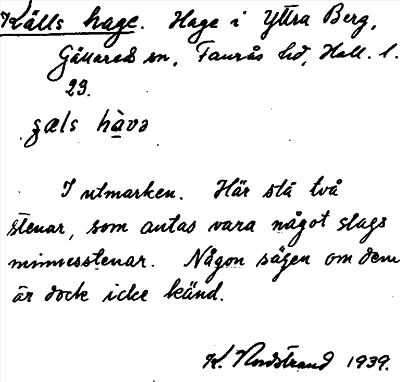 Källs hage. Hage i Yttra Berg,
Gällared sn, Faurås hd, Hall. l.
23.
hava
I utmarken. Här stå två
stenar, som antas vara något slags
minnesstenar. Någon sägen om dem
är dock icke känd.
K. Nordstrand 1939.